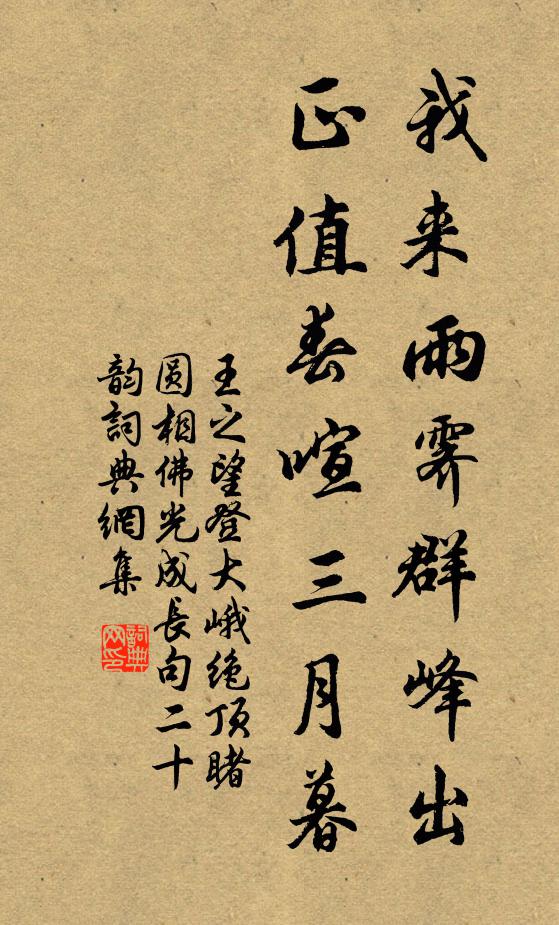 我来雨霁群峰出
正值春喧三月暮
王之望登大峨绝顶睹
圆相佛光成长句二十
韵词典網集
詞典
网印